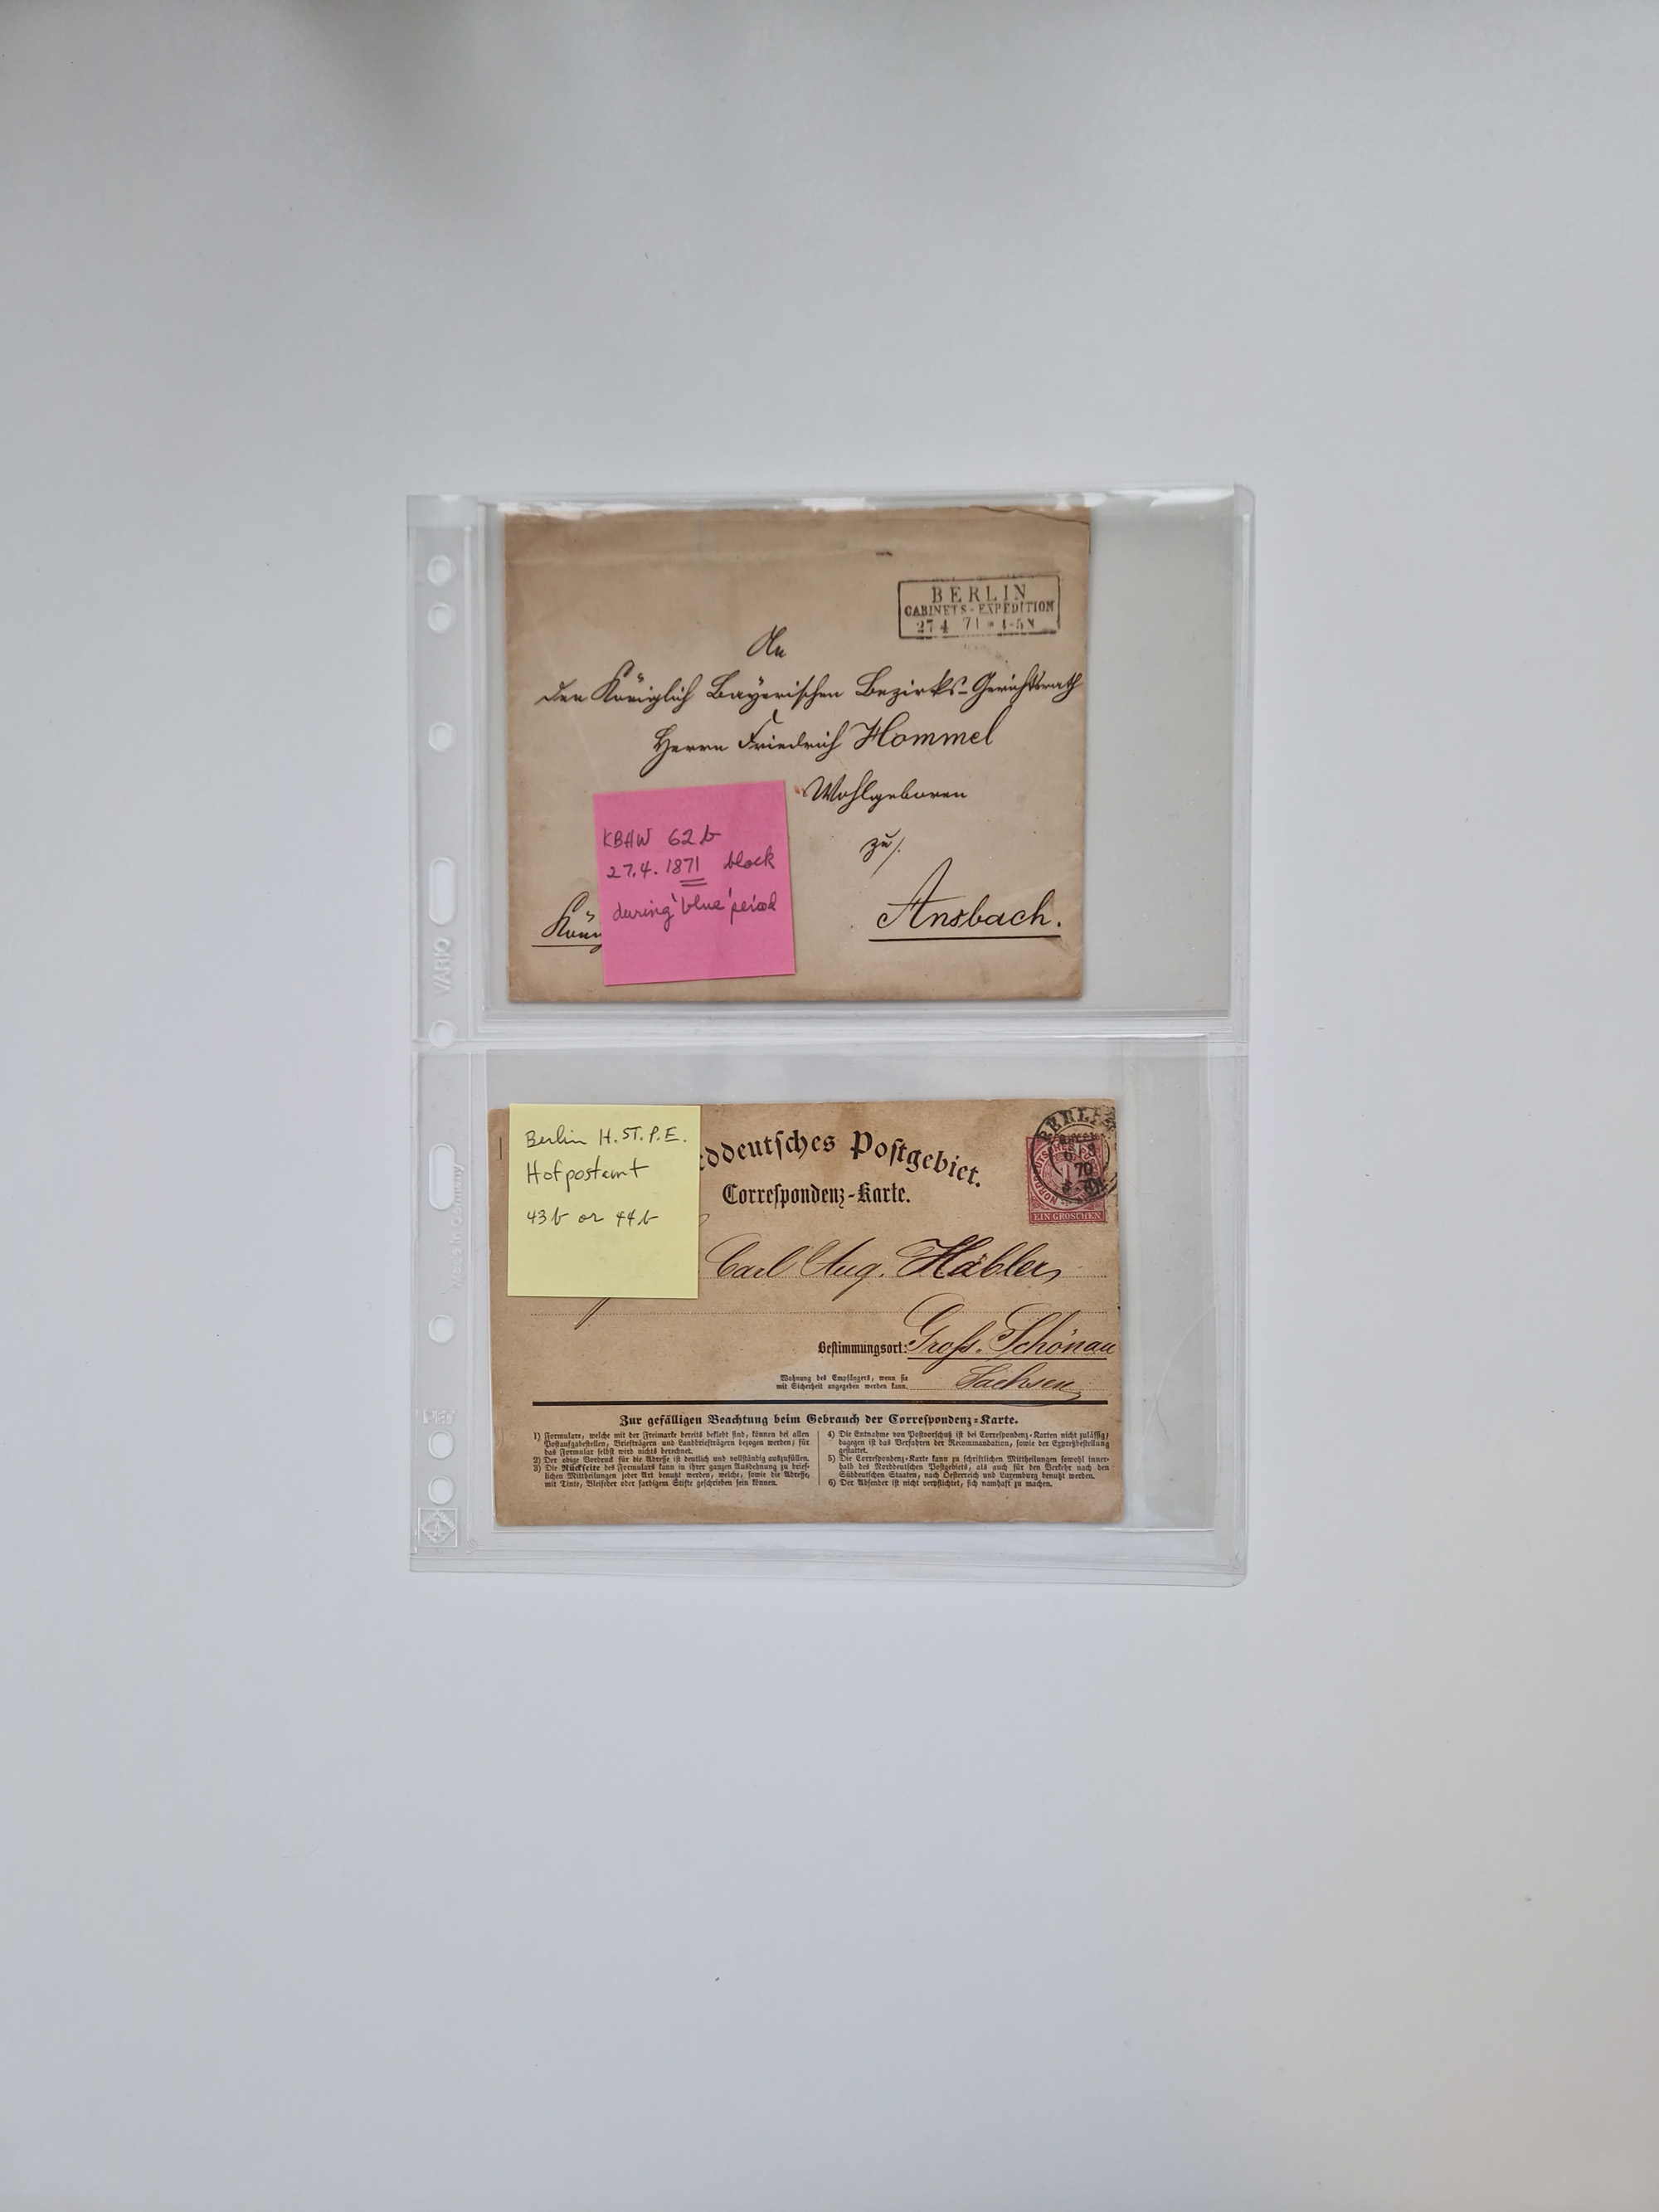 BERLIN
CABINETS-EXPEDITION
27 4 71 * 4-5 N
An
den Königlich Bayerischen Bezirks-Gerichtsrath
Herrn Friedrich Hommel
Wohlgeboren
zu/.
Ansbach.
KBHW 62b
27.4.1871 black
during 'blue' period
VARIO
Berlin H.ST.P.E.
Hofpostamt
43b or 44b
ddeutsches Postgebiet.
Correspondenz-Karte.
BERLIN
70
EIN GROSCHEN
Carl Aug. Häbler,
Bestimmungsort: Groß. Schönau
Wohnung des Empfängers, wenn sie
mit Sicherheit angegeben werden kann.
Sachsen
Zur gefälligen Beachtung beim Gebrauch der Correspondenz-Karte.
1) Formulare, welche mit der Freimarke bereits beklebt sind, können bei allen
Postaufgabestellen, Briefträgern und Landbriefträgern bezogen werden; für
das Formular selbst wird nichts berechnet.
2) Der obige Vordruck für die Adresse ist deutlich und vollständig auszufüllen.
3) Die Rückseite des Formulars kann in ihrer ganzen Ausdehnung zu brief-
lichen Mittheilungen jeder Art benutzt werden, welche, sowie die Adresse,
mit Tinte, Bleifeder oder farbigem Stifte geschrieben sein können.
4) Die Entnahme von Postvorschuß ist bei Correspondenz-Karten nicht zulässig,
dagegen ist das Verfahren der Recommandation, sowie der Expreßbestellung
gestattet.
5) Die Correspondenz-Karte kann zu schriftlichen Mittheilungen sowohl inner-
halb des Norddeutschen Postgebiets, als auch für den Verkehr nach den
Süddeutschen Staaten, nach Oesterreich und Luxemburg benutzt werden.
6) Der Absender ist nicht verpflichtet, sich namhaft zu machen.
Made in Germany
PET